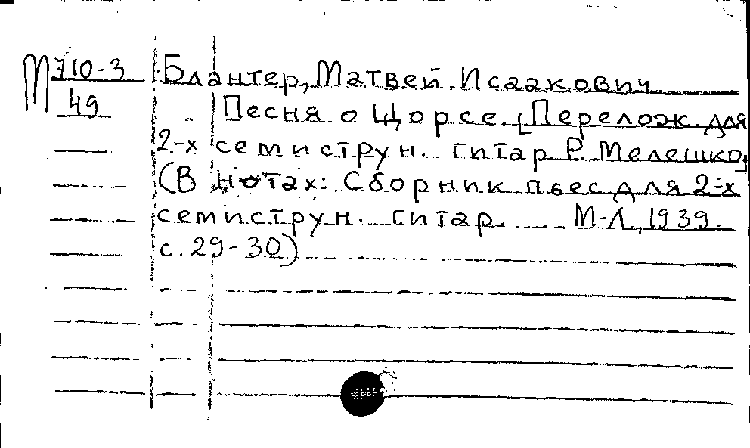 М 710-3 Блантер, Матвей Исаакович
49 Песня о Щорсе. [Перелож. для
2-х семиструн. гитар Р. Мелешко]
(В нотах: Сборник пьес для 2-х
семиструн. гитар. М-Л, 1939.
с. 29-30)